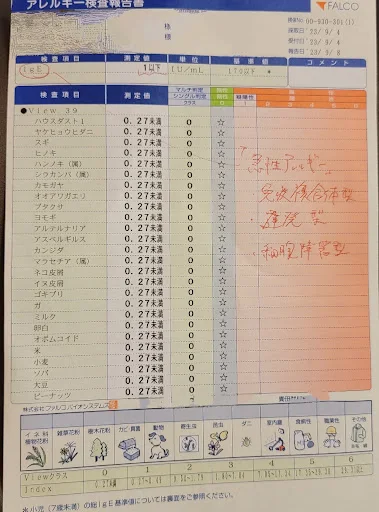 アレルギー検査報告書
FALCO
様
様
検査項目 測定値 単位 基準値
コメント
IgE 1以下 IU/mL 170以下
検査項目 測定値
●View 39
ハウスダスト1 0.27未満 0 ☆
ヤケヒョウヒダニ 0.27未満 0 ☆
スギ 0.27未満 0 ☆
ヒノキ 0.27未満 0 ☆
ハンノキ(属) 0.27未満 0 ☆
シラカンバ(属) 0.27未満 0 ☆
カモガヤ 0.27未満 0 ☆
オオアワガエリ 0.27未満 0 ☆
ブタクサ 0.27未満 0 ☆
ヨモギ 0.27未満 0 ☆
アルテルナリア 0.27未満 0 ☆
アスペルギルス 0.27未満 0 ☆
カンジダ 0.27未満 0 ☆
マラセチア(属) 0.27未満 0 ☆
ネコ皮屑 0.27未満 0 ☆
イヌ皮屑 0.27未満 0 ☆
ゴキブリ 0.27未満 0 ☆
ガ 0.27未満 0 ☆
ミルク 0.27未満 0 ☆
卵白 0.27未満 0 ☆
オボムコイド 0.27未満 0 ☆
米 0.27未満 0 ☆
小麦 0.27未満 0 ☆
ソバ 0.27未満 0 ☆
大豆 0.27未満 0 ☆
ピーナッツ 0.27未満 0 ☆
免疫複合体型
・遅発型
・細胞障害型
株式会社ファルコバイオシステムズ
イネ科植物花粉 雑草花粉 樹木花粉 カビ・真菌 動物 寄生虫 昆虫 ダニ 室内塵 食餌性 職業性 その他
Viewクラス 0 1 2 3 4 5 6
Index 0.27未満
※小児(7歳未満)の総IgE基準値については裏面をご参照ください。